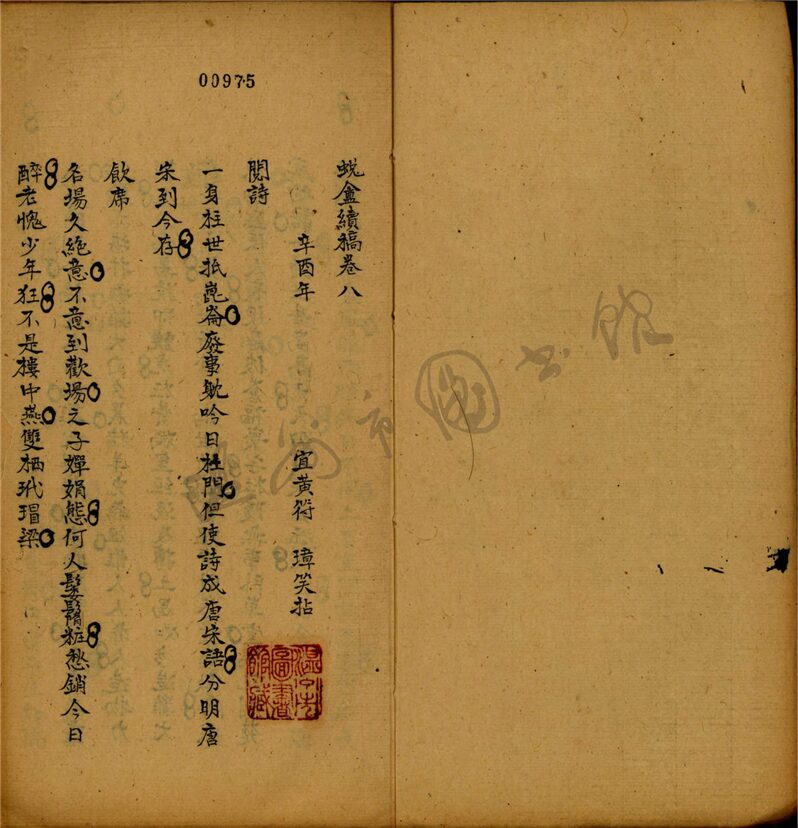 00975
蜕盦續稿卷八
辛酉年 宜黃符 璋笑拈
閱詩
一身柱世抵崑崙廢事耽吟日杜門但使詩成唐宋語分明唐
宋到今存
飲席
名場久絕意不意到歡場之子嬋娟態何人髮鬅粧愁銷今日
醉老愧少年狂不是樓中燕雙栖玳瑁梁
溫州市圖書館藏
溫州市圖書館